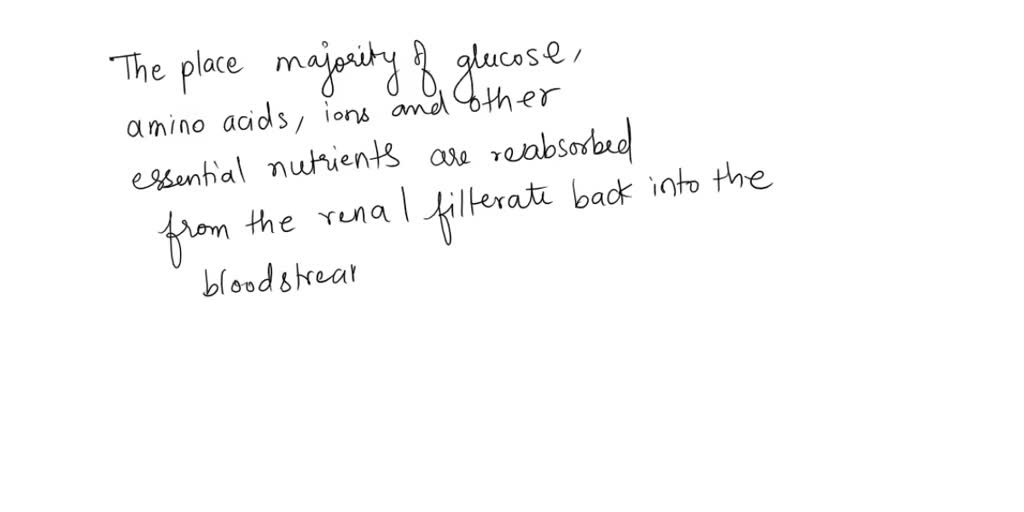 The place majority of glucose,
amino acids, ions and other
essential nutrients are reabsorbed
from the renal filterate back into the
bloodstrear